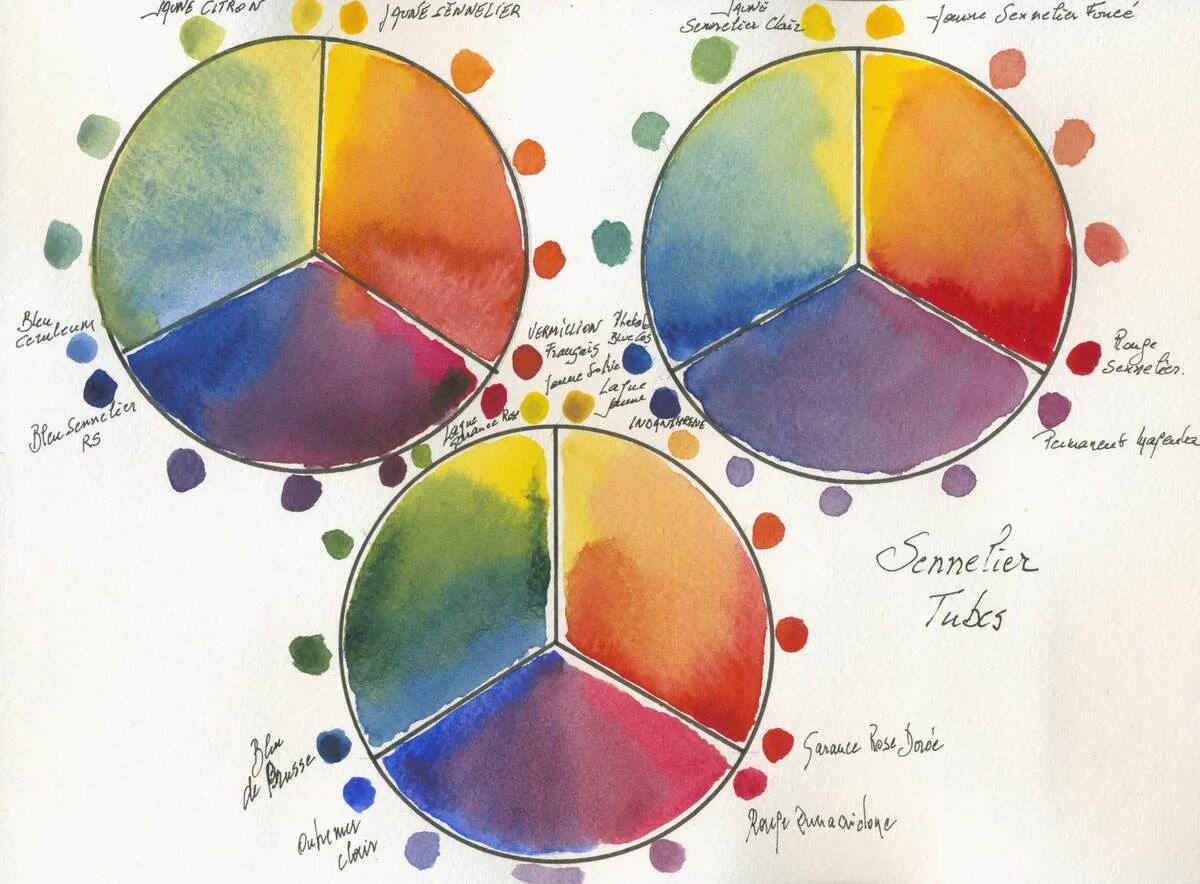 JAUNE CITRON
JAUNE SENNELIER
JAUNE
Sennelier Clair
Jaune Sennelier Foncé
Bleu
Ceruleum
Bleu Sennelier
RS
VERMILLION
Français
Laque
Garance Rose
Phtalo
Blue
Laque
Jaune
INDANTHRENE
Rouge
Sennelier.
Permanent Magenta
Sennelier
Tubes
Bleu
de Prusse
Outremer
clair
Garance Rose Dorée
Rouge Quinacridone